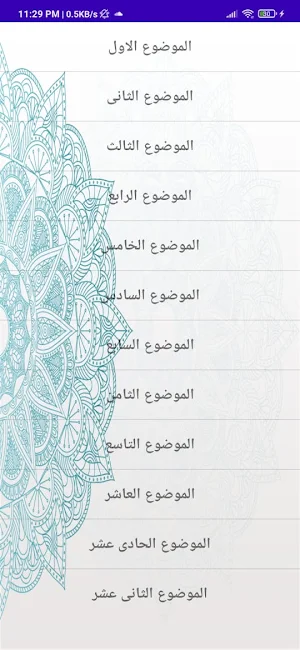 11:29 PM | 0.5KB/s
90
الموضوع الاول
الموضوع الثانى
الموضوع الثالث
الموضوع الرابع
الموضوع الخامس
الموضوع السادس
الموضوع السابع
الموضوع الثامن
الموضوع التاسع
الموضوع العاشر
الموضوع الحادى عشر
الموضوع الثانى عشر